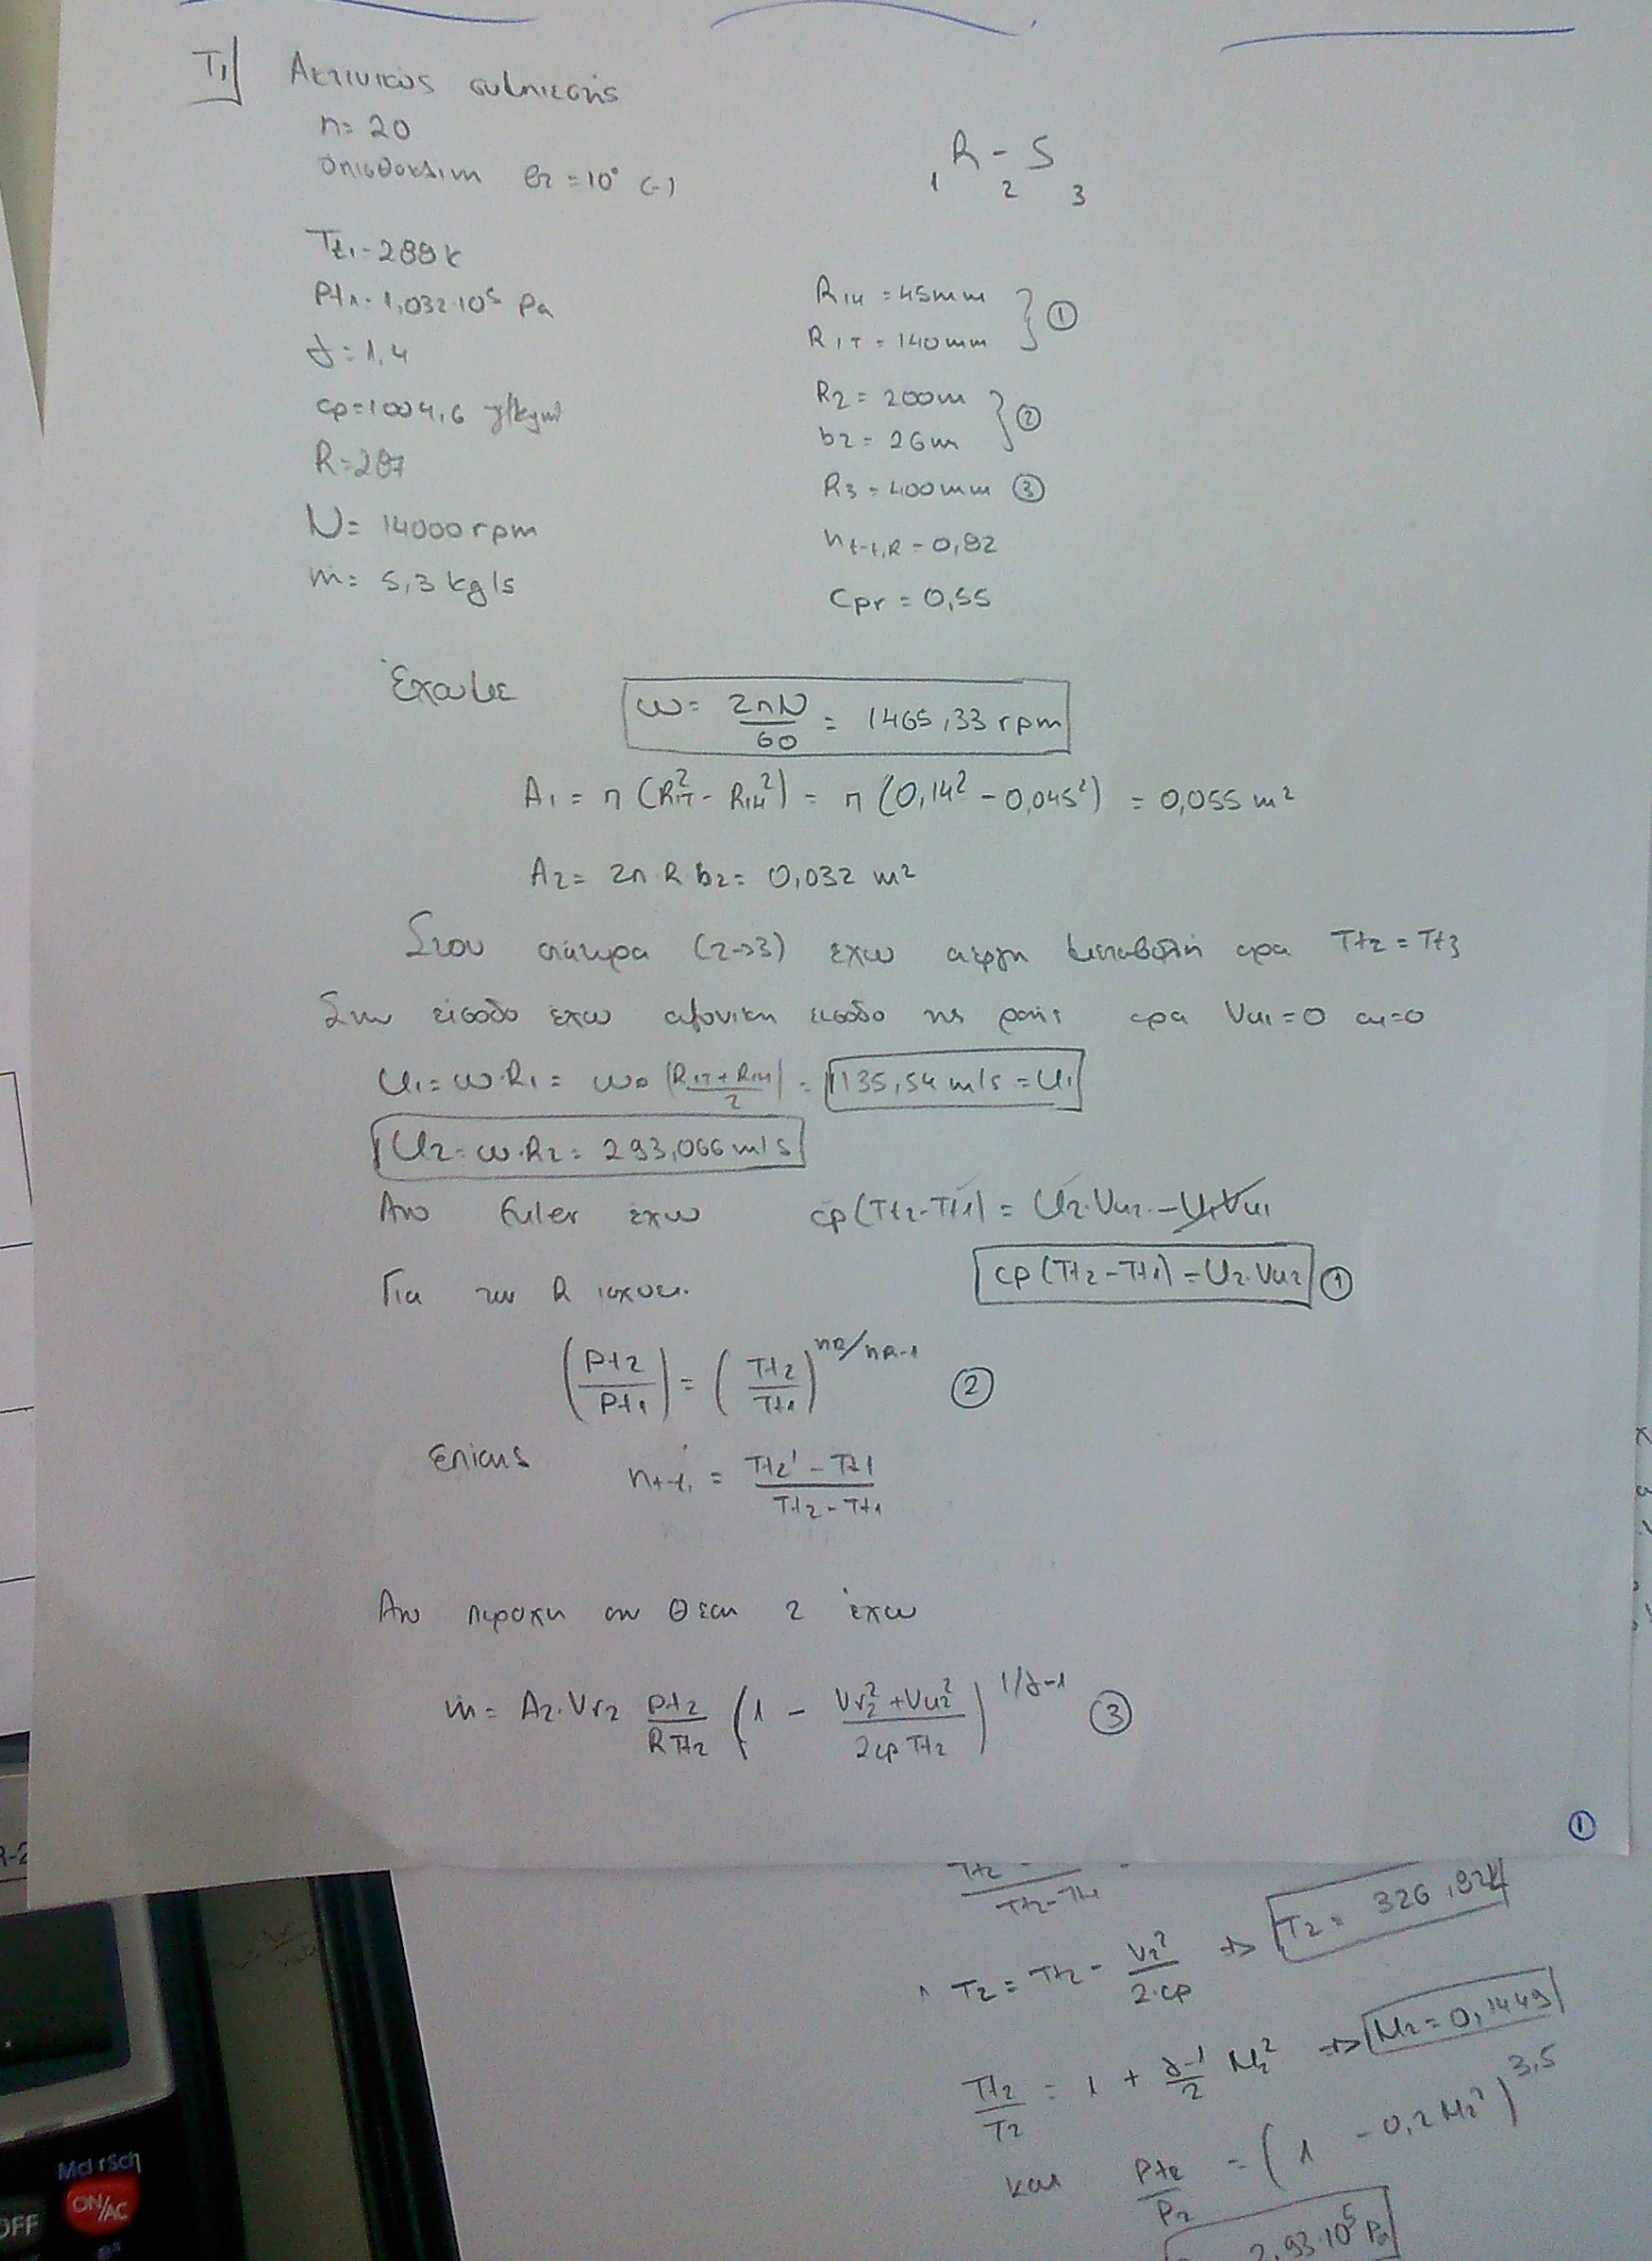 T1] Ακτινικός συμπιεστής
n= 20
οπισθοκλιπη β2 = 10° (-)
1 R - 2 S 3
Tt1 = 288 K
Pt1 = 1,032·10⁵ Pa
γ = 1,4
cp = 1004,6 J/kgK
R = 287
N = 14000 rpm
m = 5,3 kg/s
R1H = 45mm
R1T = 140mm } ①
R2 = 200m
b2 = 26m } ②
R3 = 400mm ③
ηt-t,R = 0,92
Cpr = 0,55
Έχουμε ω = 2πN/60 = 1465,33 rpm
A1 = π (R1T² - R1H²) = π (0,14² - 0,045²) = 0,055 m²
A2 = 2π R b2 = 0,032 m²
Στον στάτορα (2->3) έχω αεργη μεταβολη αρα Tt2 = Tt3
Στην είσοδο έχω αξονικη εισοδο της ροης αρα Vu1 = 0 a1 = 0
U1 = ω·R1 = ω · (R1T + R1H)/2 = 135,54 m/s = U1
U2 = ω·R2 = 293,066 m/s
Απο Euler έχω cp(Tt2-Tt1) = U2·Vu2 - U1Vu1
cp(Tt2-Tt1) = U2·Vu2 ①
Για τον R ισχυει.
(Pt2/Pt1) = (Tt2/Tt1)^nR/nR-1 ②
Επίσης ηt-t = (Tt2' - Tt1)/(Tt2 - Tt1)
Απο παροχη στη θέση 2 έχω
ṁ = A2·Vr2 Pt2/RTt2 (1 - (Vr2² + Vu2²)/2cpTt2)^1/γ-1 ③
①
Tt2-Tt1
T2 = Tt2 - V2²/2·cp => T2 = 326,92K
Tt2/T2 = 1 + γ-1/2 M2² => M2 = 0,1449
και Pt2/P2 = (1 - 0,2M2²)^3,5
2,93·10⁵ Pa
Mcl rSch
ON/AC
OFF